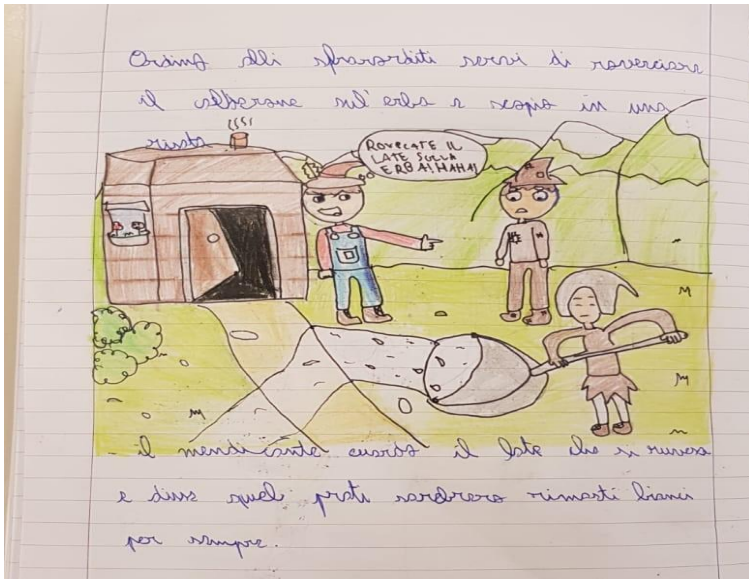 Ordinò alli sbararditi servi di roverciare
il calderone sul'erba e scopiò in una
risata
ROVECATE IL
LATE SULLA
ERBA! HAHA!
il mendicante cuardò il late che si ruversa
e disse quele prati sarebraro rimasti bianci
per sempre.